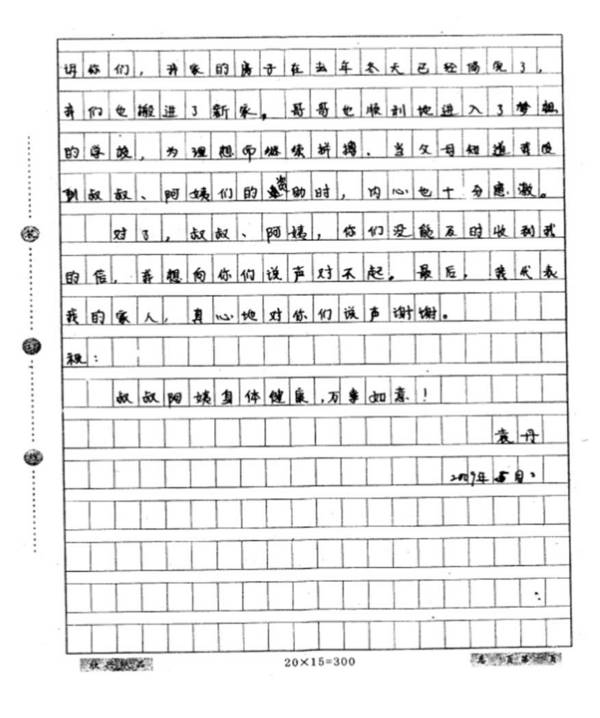 诉你们，我家的房子在去年冬天已经偷完了，
我们也搬进了新家。哥哥也顺利地进入了梦想
的学校，为理想而继续拼搏、当父母知道有收
到叔叔、阿姨们的资助时，内心也十分感激。
对了，叔叔、阿姨，你们没能及时收到我
的信，我想向你们说声对不起。最后，我代表
我的家人，真心地对你们说声谢谢。
祝：
叔叔阿姨身体健康，万事如意！
袁丹
2009年
20×15=300
页 第 页